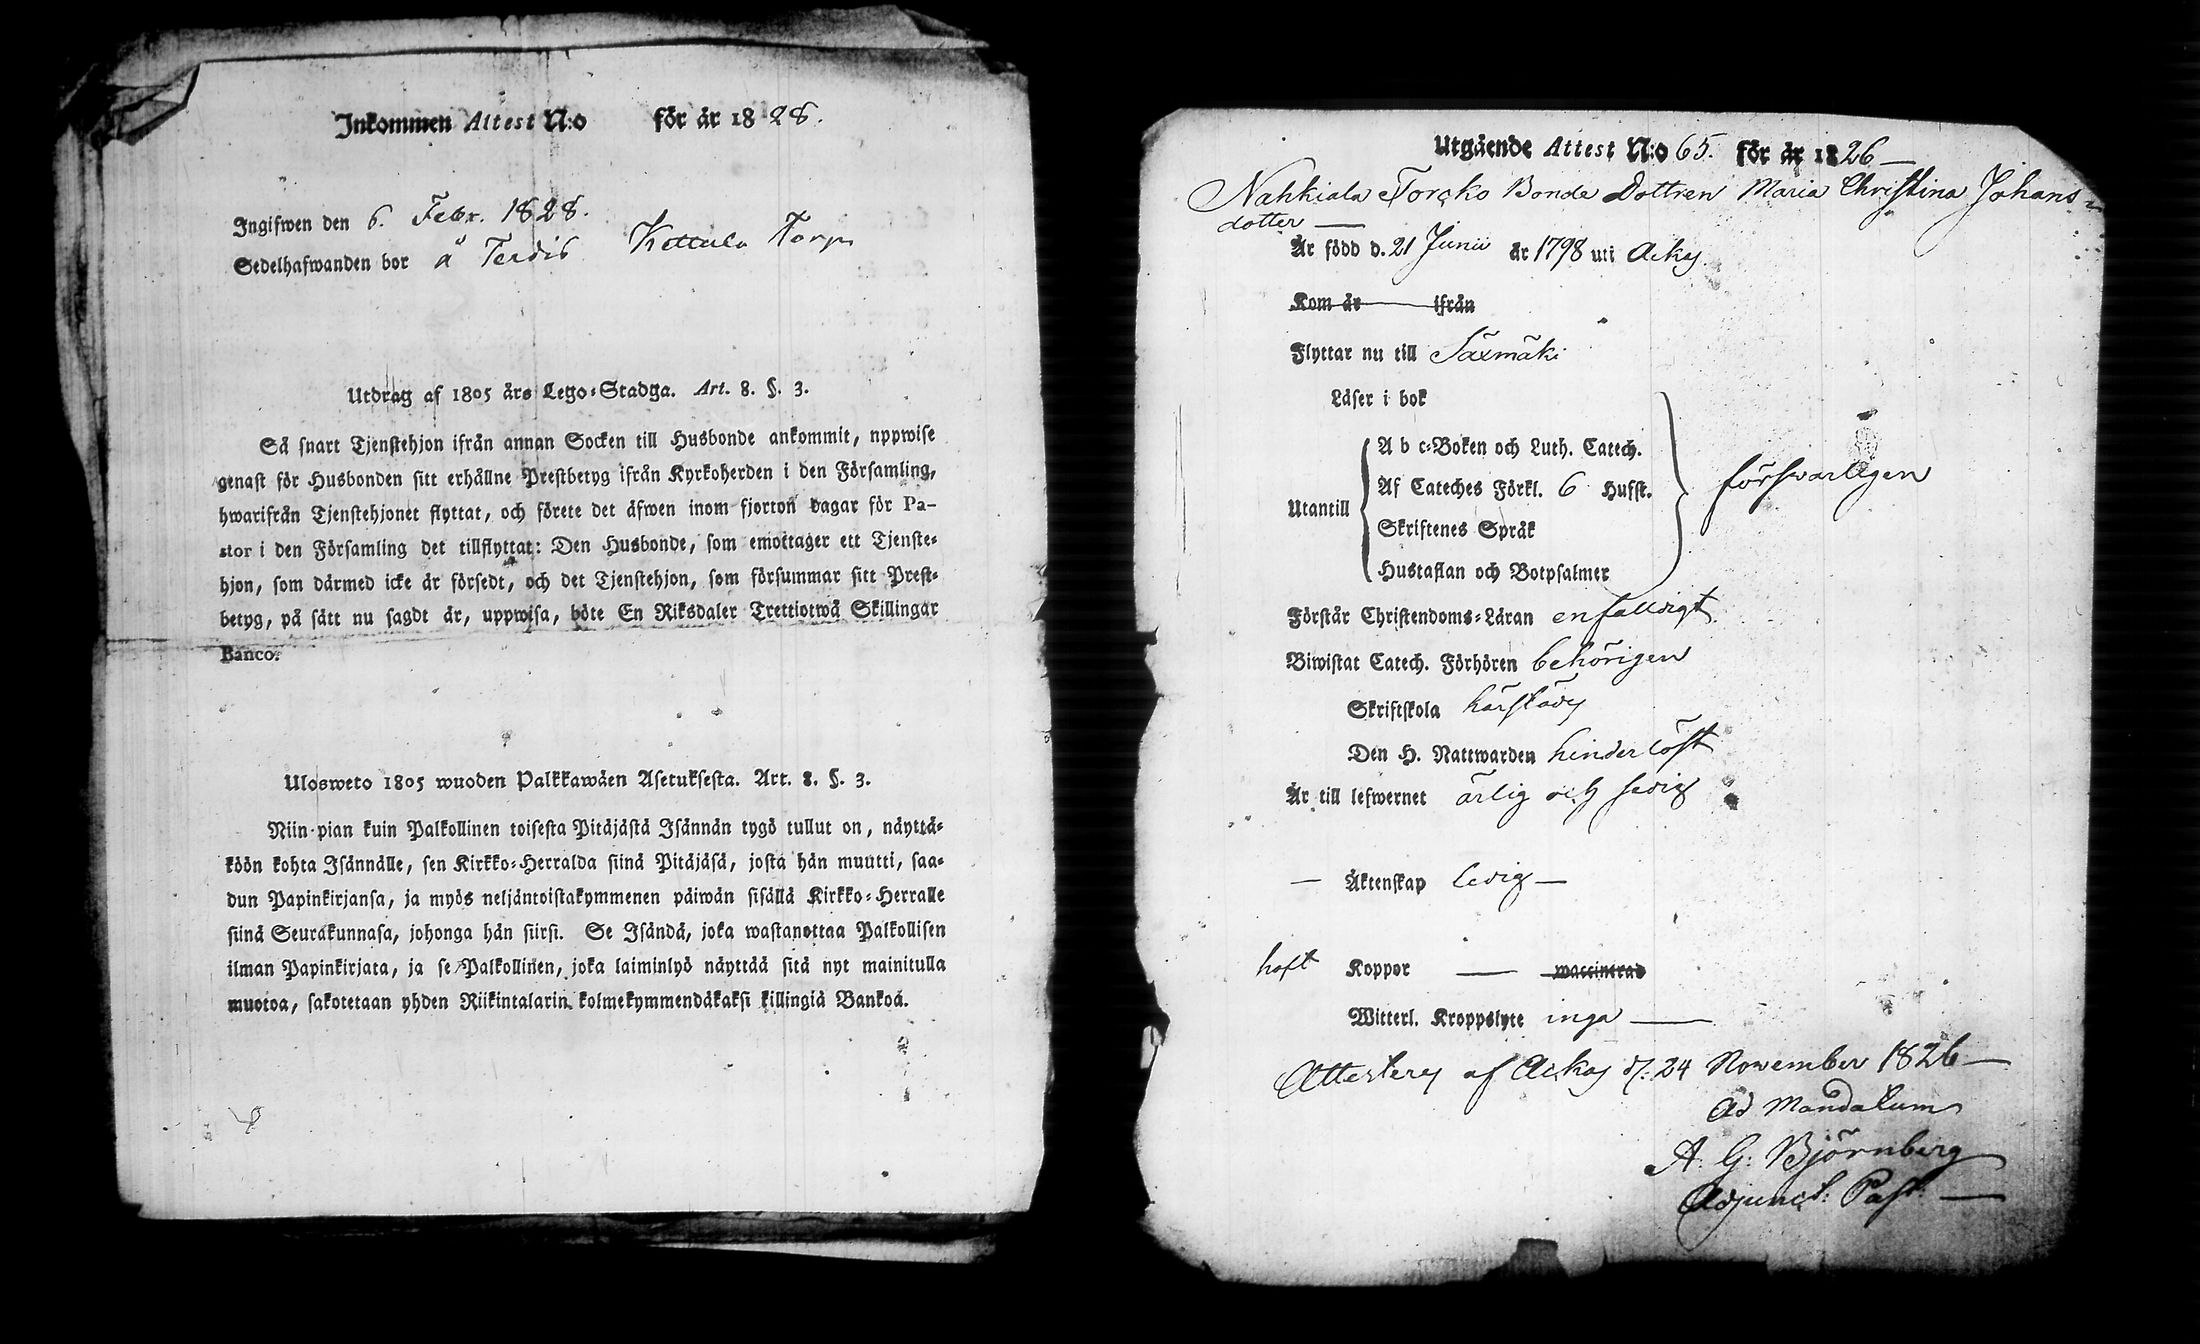 Inkommen Attest N:o för år 1828.
Ingifwen den 6. Febr. 1828.
Sedelhafwanden bor å Kettula Torp
Utdrag af 1805 års Lego-Stadga. Art. 8. §. 3.
Så snart Tjenstehjon ifrån annan Socken till Husbonde ankommit, uppwise
genast för Husbonden sitt erhållne Prestbetyg ifrån Kyrkoherden i den Församling,
hwarifrån Tjenstehjonet flyttat, och förete det äfwen inom fjorton dagar för Pa-
stor i den Församling det tillflyttat: Den Husbonde, som emottager ett Tjenste-
hjon, som därmed icke är försedt, och det Tjenstehjon, som försummar sitt Prest-
betyg, på sätt nu sagdt är, uppwisa, böte En Riksdaler Trettiotwå Skillingar
Banco.
Ulosweto 1805 wuoden Palkkawäen Asetuksesta. Art. 8. §. 3.
Niin pian kuin Palkollinen toisesta Pitäjästä Isännän tygö tullut on, näyttä-
köön kohta Isännälle, sen Kirkko-Herralda siinä Pitäjäsä, josta hän muutti, saa-
dun Papinkirjansa, ja myös neljäntoistakymmenen päiwän sisällä Kirkko-Herralle
siinä Seurakunnasa, johonga hän siirsi. Se Isändä, joka wastanottaa Palkollisen
ilman Papinkirjata, ja se Palkollinen, joka laiminlyö näyttää sitä nyt mainitulla
muotoa, sakotetaan yhden Riikintalarin kolmekymmendäkaksi killingiä Bankoa.
Utgående Attest N:o 65. för år 1826
Nahkiala Torcko Bonde Dottren Maria Christina Johans-
dotter
Är född d. 21 Junii år 1798 uti Ackas
Kom år ifrån
Flyttar nu till Säxmäki
Läser i bok
Utantill
A b c-Boken och Luth. Catech.
Af Cateches Förkl. 6 Hufst.
Skriftenes Språk
Hustaflan och Botpsalmer
försvarligen
Förstår Christendoms-Läran enfalldigt
Biwistat Catech. Förhören behörigen
Skriftskola härstädes
Den H. Nattwarden hinderlöst
Är till lefwernet ärlig och sedig
Äktenskap ledig
haft Koppor waccinerad
Witterl. Kroppslyte inga
Attesterar af Ackas d. 24 November 1826
Ad Mandatum
A. G. Björnberg
Adjunct. Past.